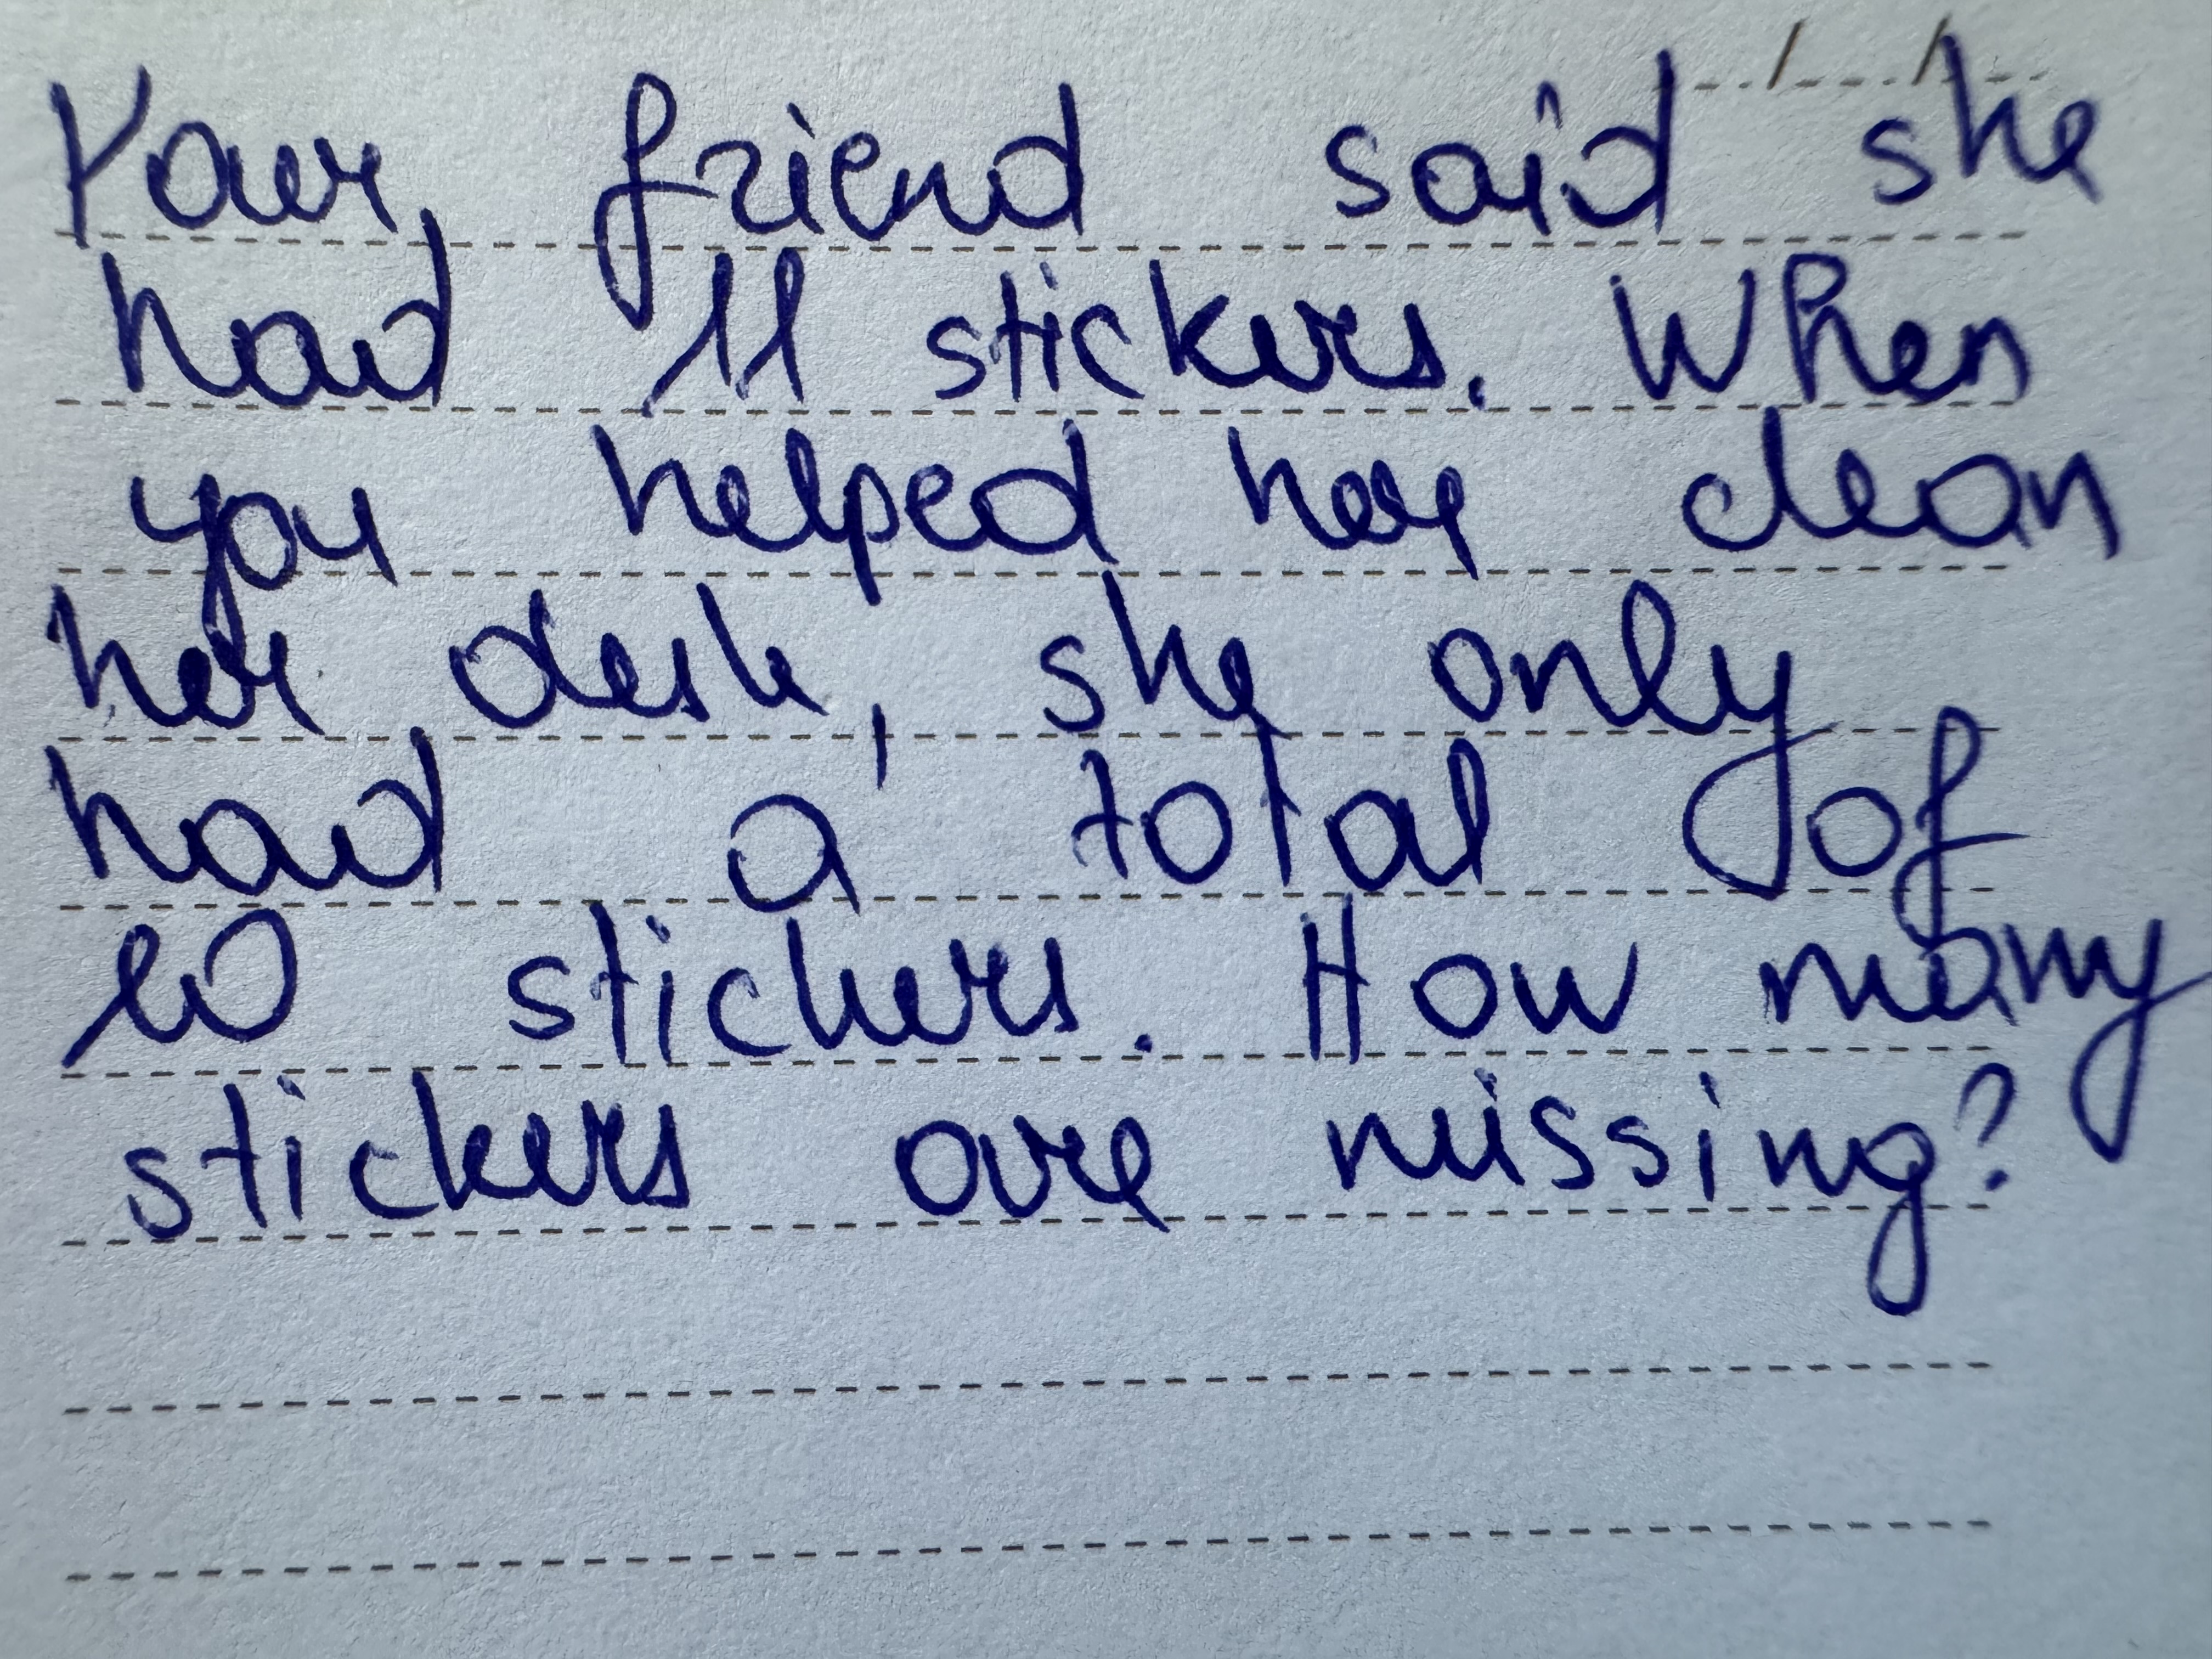 Your friend said she
had 11 stickers. When
you helped her clean
her desk, she only
had a total of
10 stickers. How many
stickers are missing?